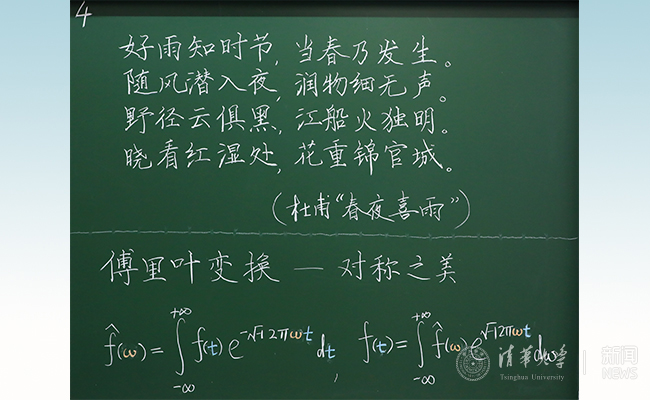 4
好雨知时节, 当春乃发生。
随风潜入夜, 润物细无声。
野径云俱黑, 江船火独明。
晓看红湿处, 花重锦官城。
(杜甫“春夜喜雨”)
傅里叶变换 — 对称之美
f̂(ω) = ∫_{-∞}^{+∞} f(t) e^{-√-1 2πωt} dt, f(t) = ∫_{-∞}^{+∞} f̂(ω) e^{√-1 2πωt} dω
清华大学 新闻
Tsinghua University NEWS